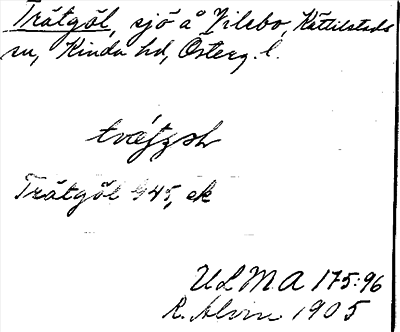 Trätgöl, sjö å Vilebo, Kättilstads
sn, Kinda hd, Österg. l.
Trätgöl G45, ek
ULMA 175:96
R. Alvin 1905